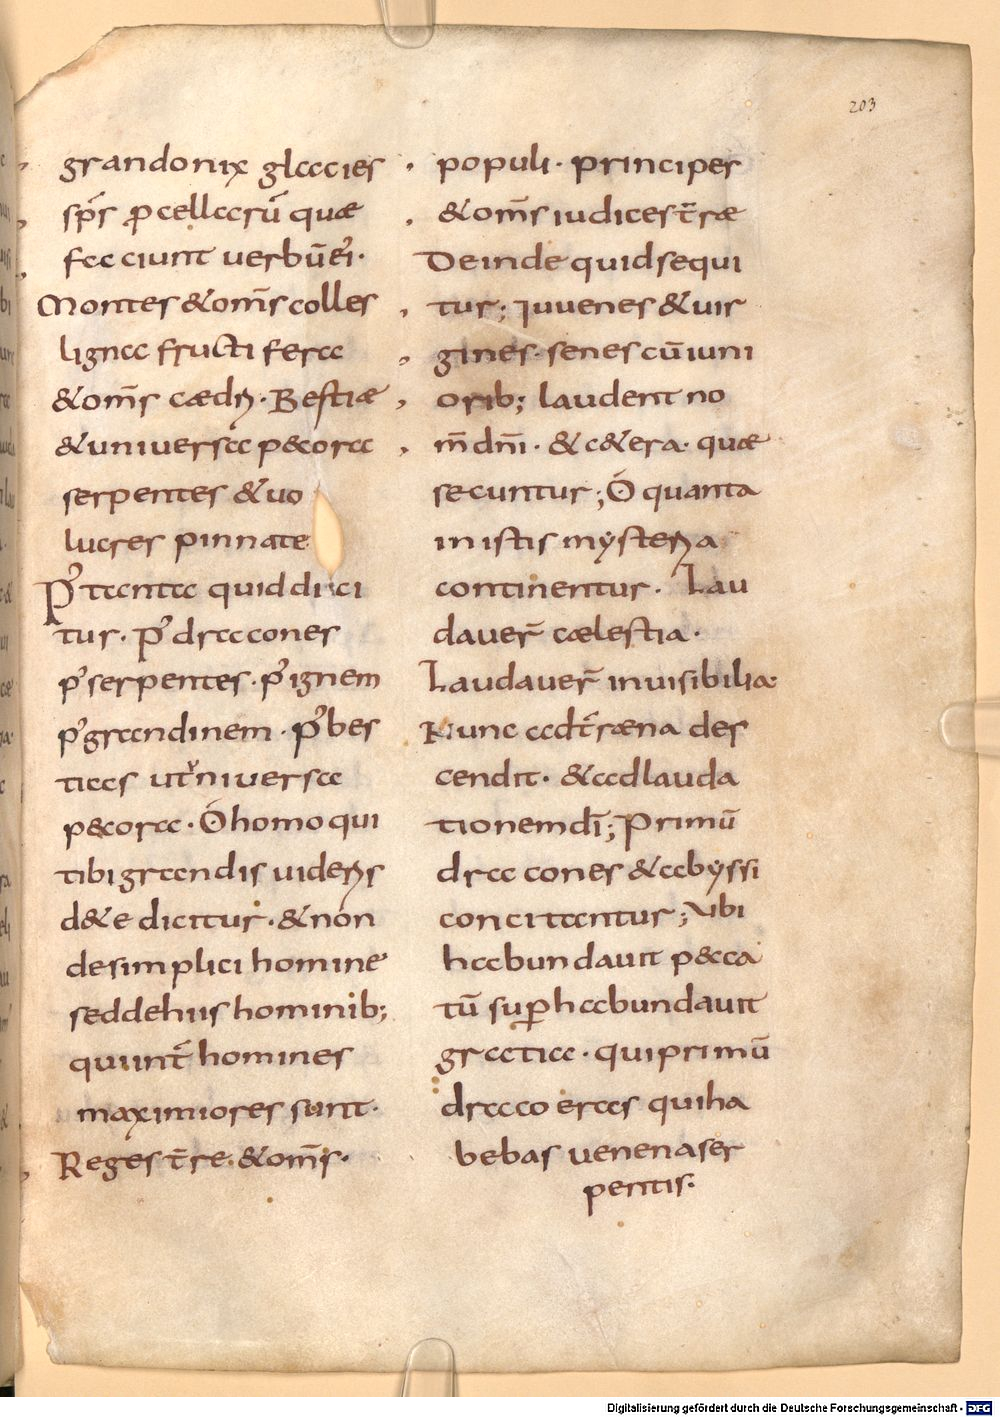 203
grandonix glacies
sp̄s p̱cellarū quæ
faciunt verbū ei·
Montes &om̄s colles
ligna fructifera
&om̄s cædri· Bestiæ
&universa p&cora
serpentes &uo
lucres pinnate
P̄ tanta quid dici
tur· P̄ dracones
p̄ serpentes· p̄ ignem
p̄ grandinem· p̄ bes
tias ut universa
p&cora· O homo qui
tibi grandis videris
d&e dicitur· &non
desimplici homine
seddehis hominib;
qui int̄ homines
maximiores sunt·
Reges t̄re &om̄s·
populi· principes
&om̄s iudices t̄ræ
Deinde quid sequi
tur; Iuvenes &uir
gines· senes cū iuni
orib; laudent no
m̄ dn̄i· &c&era· quæ
secuntur; O quanta
inistis mysteria
continentur· Lau
daver̄ cælestia·
Laudaver̄ invisibilia
Nunc ad t̄ræna des
cendit· &adlauda
tionem dī; Primū
dracones &abyssi
concitantur; Ubi
habundavit pecca
tū sup̱habundavit
gratia· qui primū
draco eras qui ha
bebas venena ser
pentis·
Digitalisierung gefördert durch die Deutsche Forschungsgemeinschaft - DFG